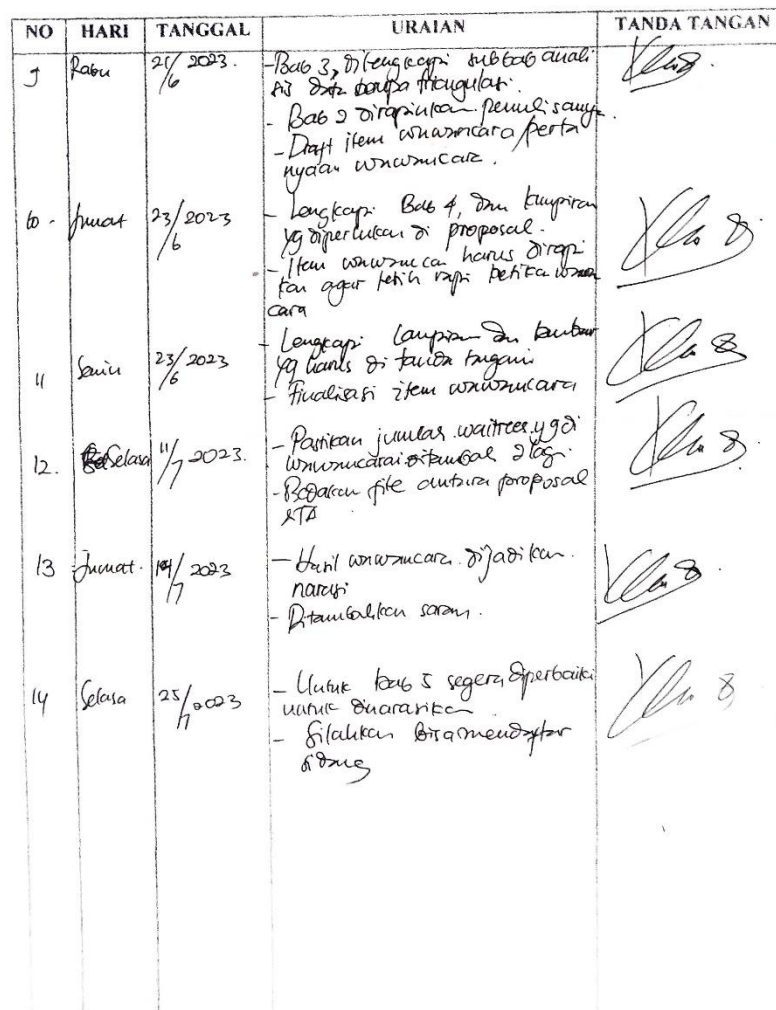 NO HARI TANGGAL URAIAN TANDA TANGAN
9 Rabu 21/6 2023. -Bab 3, dilengkapi subbab anali
sis data berupa triangulasi.
- Bab 2 dirapihkan penulisannya.
- Draft item wawancara/perta
nyaan wawancara.
10 - Jumat 23/6 2023 - Lengkapi Bab 4, dan lampiran
yg diperlukan di proposal.
- Item wawancara harus dirapi
kan agar lebih rapi ketika wawan
cara
11 Senin 23/6 2023 - Lengkapi lampiran dan lembar
yg harus di tanda tangani
- Finalisasi item wawancara
12. Selasa 11/7 2023. - Pastikan jumlah waitress yg di
wawancarai ditambah 2 lagi.
- Bedakan file antara proposal
& TA
13 Jumat. 14/7 2023 - Hasil wawancara dijadikan
narasi
- Ditambahkan saran.
14 Selasa 25/7 2023 - Untuk bab 5 segera diperbaiki
untuk dinarasikan
- Silahkan bisa mendaftar
sidang